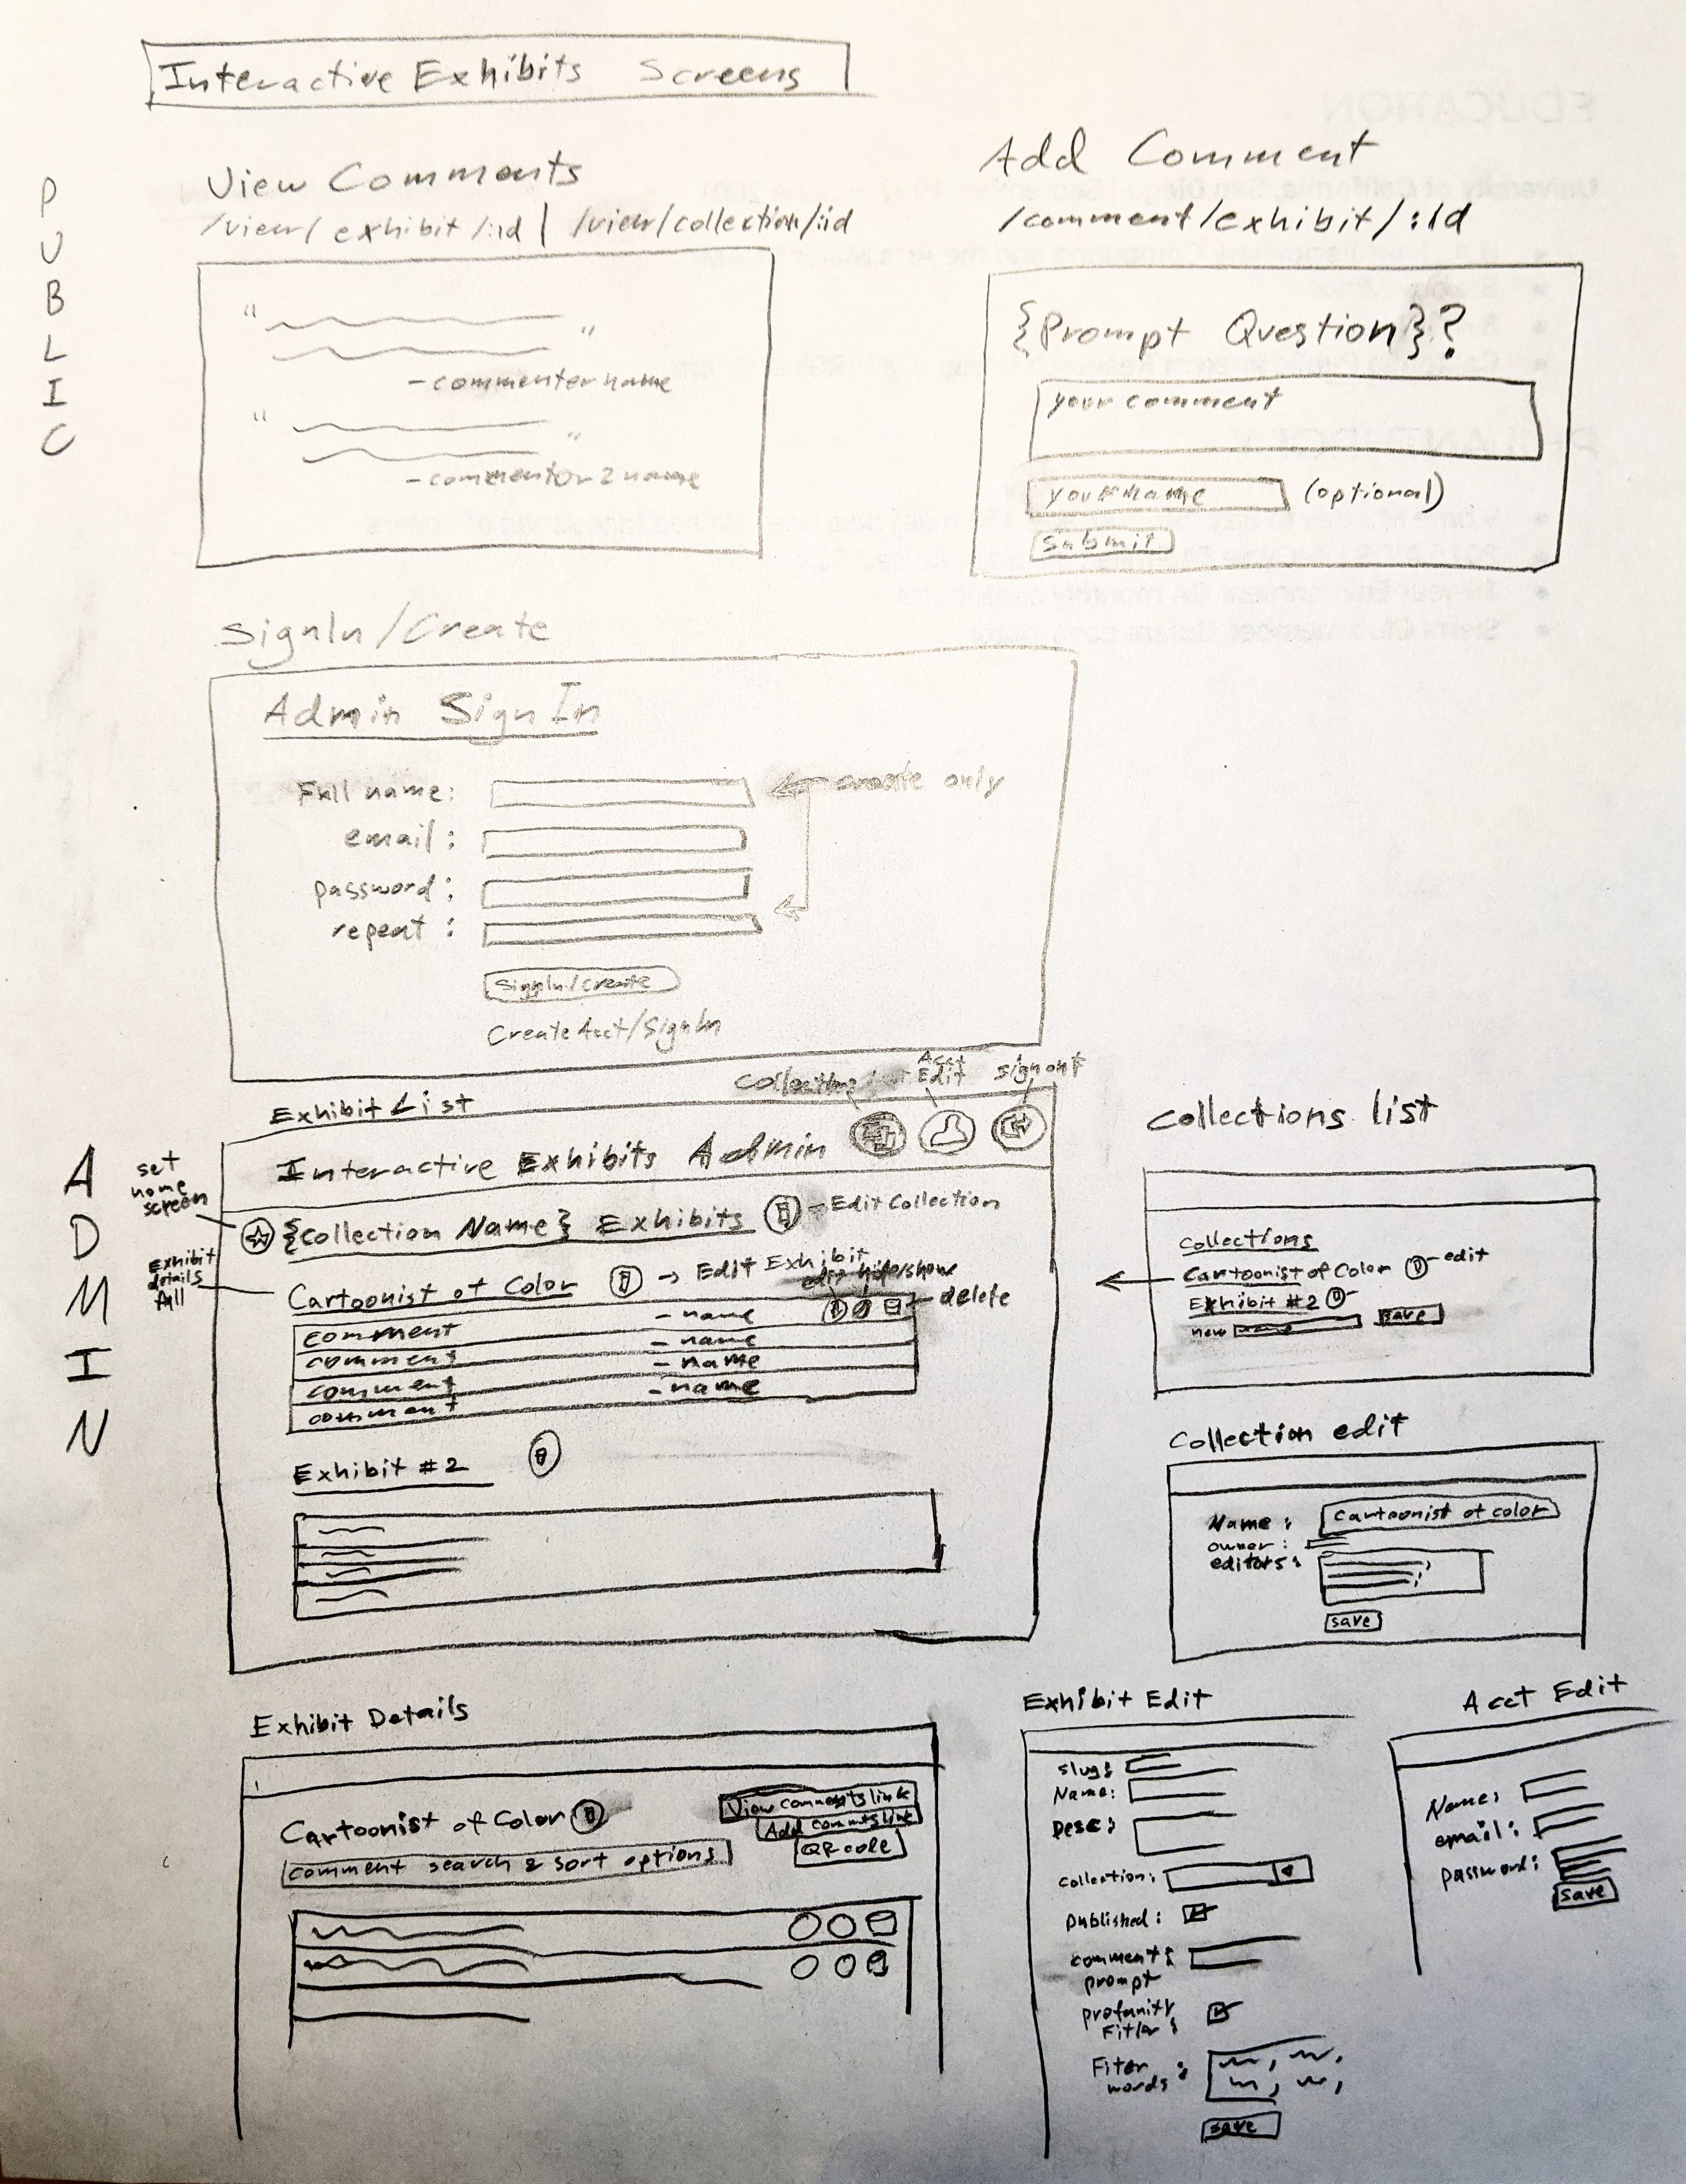 Interactive Exhibits Screens
PUBLIC
View Comments
/view/exhibit/:id | /view/collection/:id
"
"
- commenter name
"
"
- commentor 2 name
Add Comment
/comment/exhibit/:id
{Prompt Question}?
your comment
your name (optional)
submit
SignIn/Create
Admin Sign In
Full name:
create only
email:
password:
repeat:
SignIn/Create
Create Acct/SignIn
ADMIN
Exhibit List
Collections
Acct Edit
signout
Interactive Exhibits Admin
set home screen
{Collection Name} Exhibits
Edit Collection
Exhibit details full
Cartoonist of Color
-> Edit Exhibit
edit hide/show
delete
comment - name
comment - name
comment - name
comment - name
Exhibit #2
Collections list
Collections
Cartoonist of Color - edit
Exhibit #2
new name save
Collection edit
Name: Cartoonist of color
owner:
editors:
save
Exhibit Details
Cartoonist of Color
View comments link
Add commts link
QR code
comment search & sort options
Exhibit Edit
slug:
Name:
Desc:
Collection:
published:
comment prompt:
profanity Fitler:
Fiter words:
save
Acct Edit
Name:
email:
password:
save